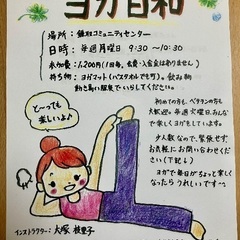 ヨガ日和
場所：鎌和コミュニティセンター
日時：毎週月曜日 9:30〜10:30
参加費：1,200円(1回、会費・入会金はありません)
持ち物：ヨガマット(バスタオルでも可)。飲み物
動き易い服装でいらしてください。
と〜っても
楽しいよ♪
初めての方も、ベテランの方も
大歓迎。毎週火曜日、みんな
で楽しくヨガをしています。
少人数なので、緊張せず、
お気軽にお問い合わせ
ください(下記↓)
ヨガで毎日がちょっと楽しく
なったらうれしいです
インストラクター：大塚 枝里子